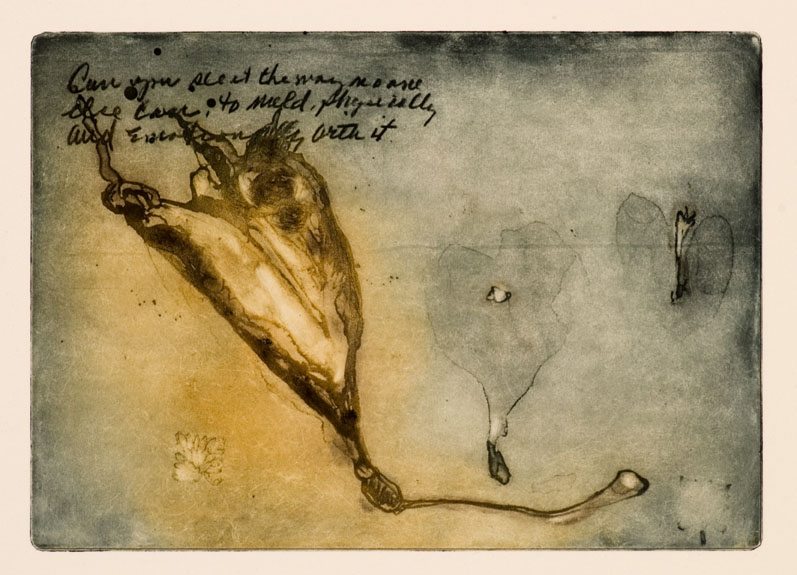 Can you see it the way no one
else can; to meld, physically
and Emotionally with it